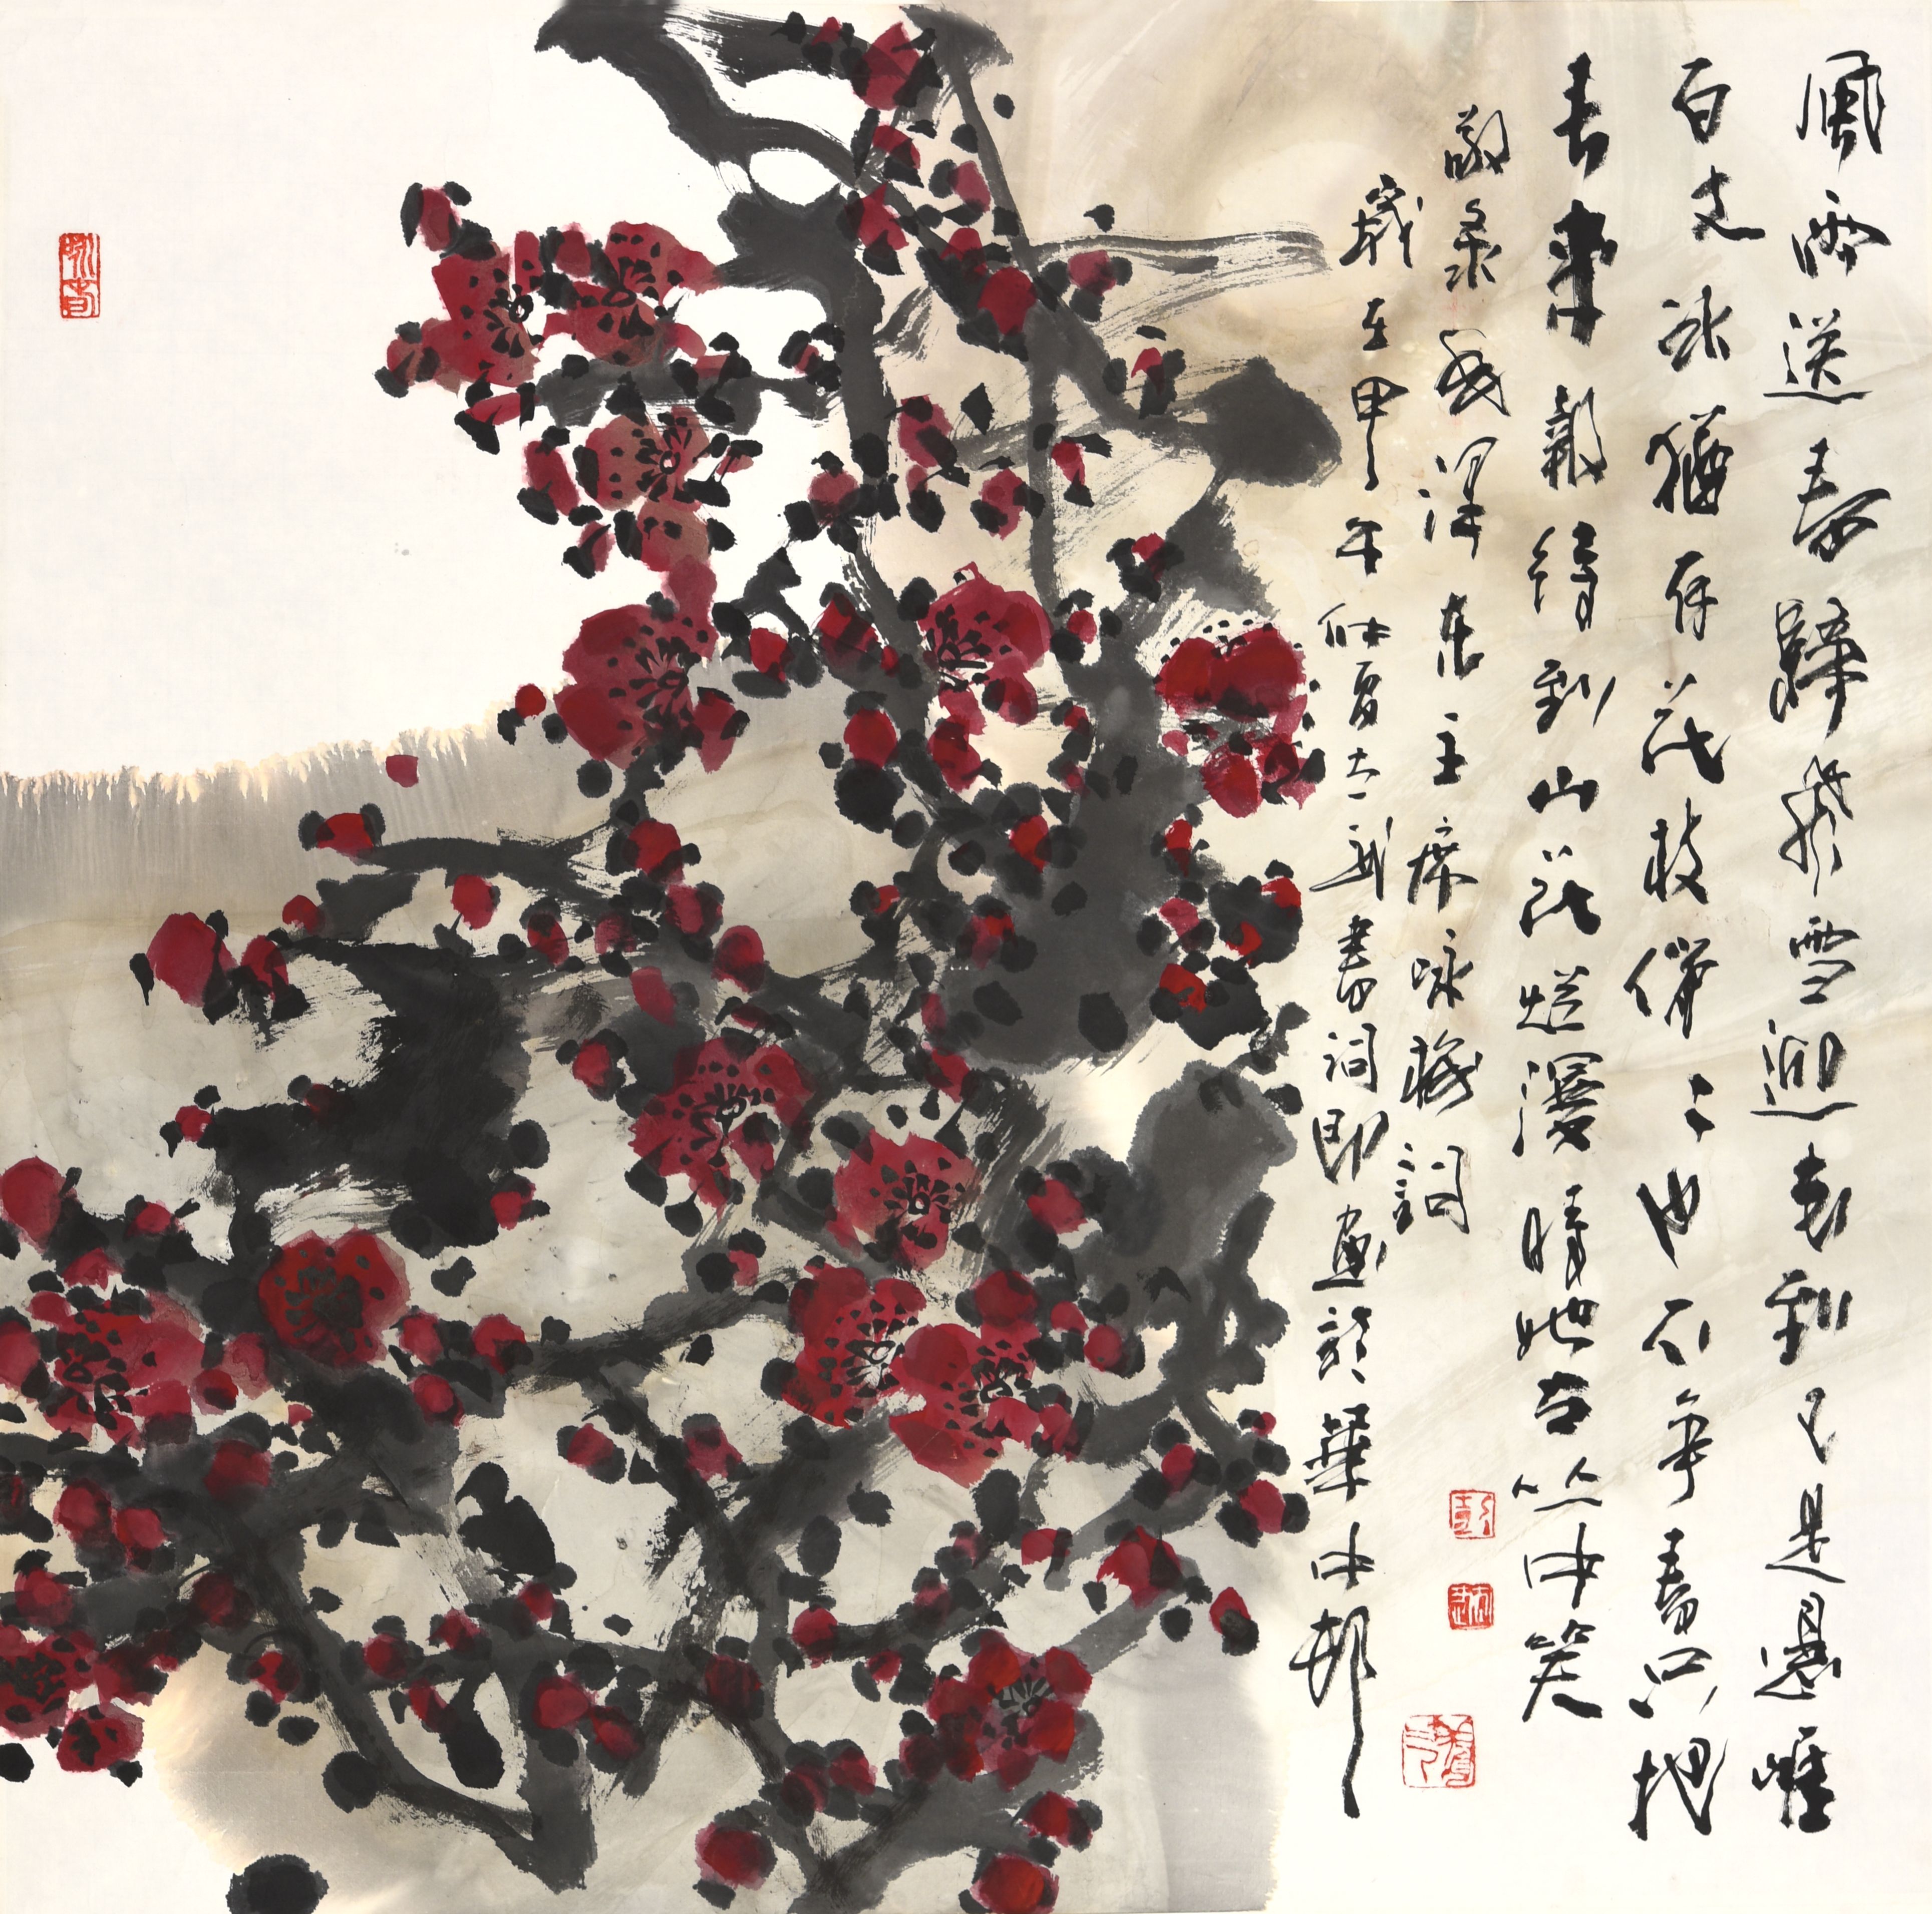 風雨送春歸飛雪迎春到已是懸崖
百丈冰猶有花枝俏〻也不争春只把
春來報待到山花烂漫時她在丛中笑
敬录毛泽东主席咏梅詞
歲在甲午仲夏書詞即画於華中邨